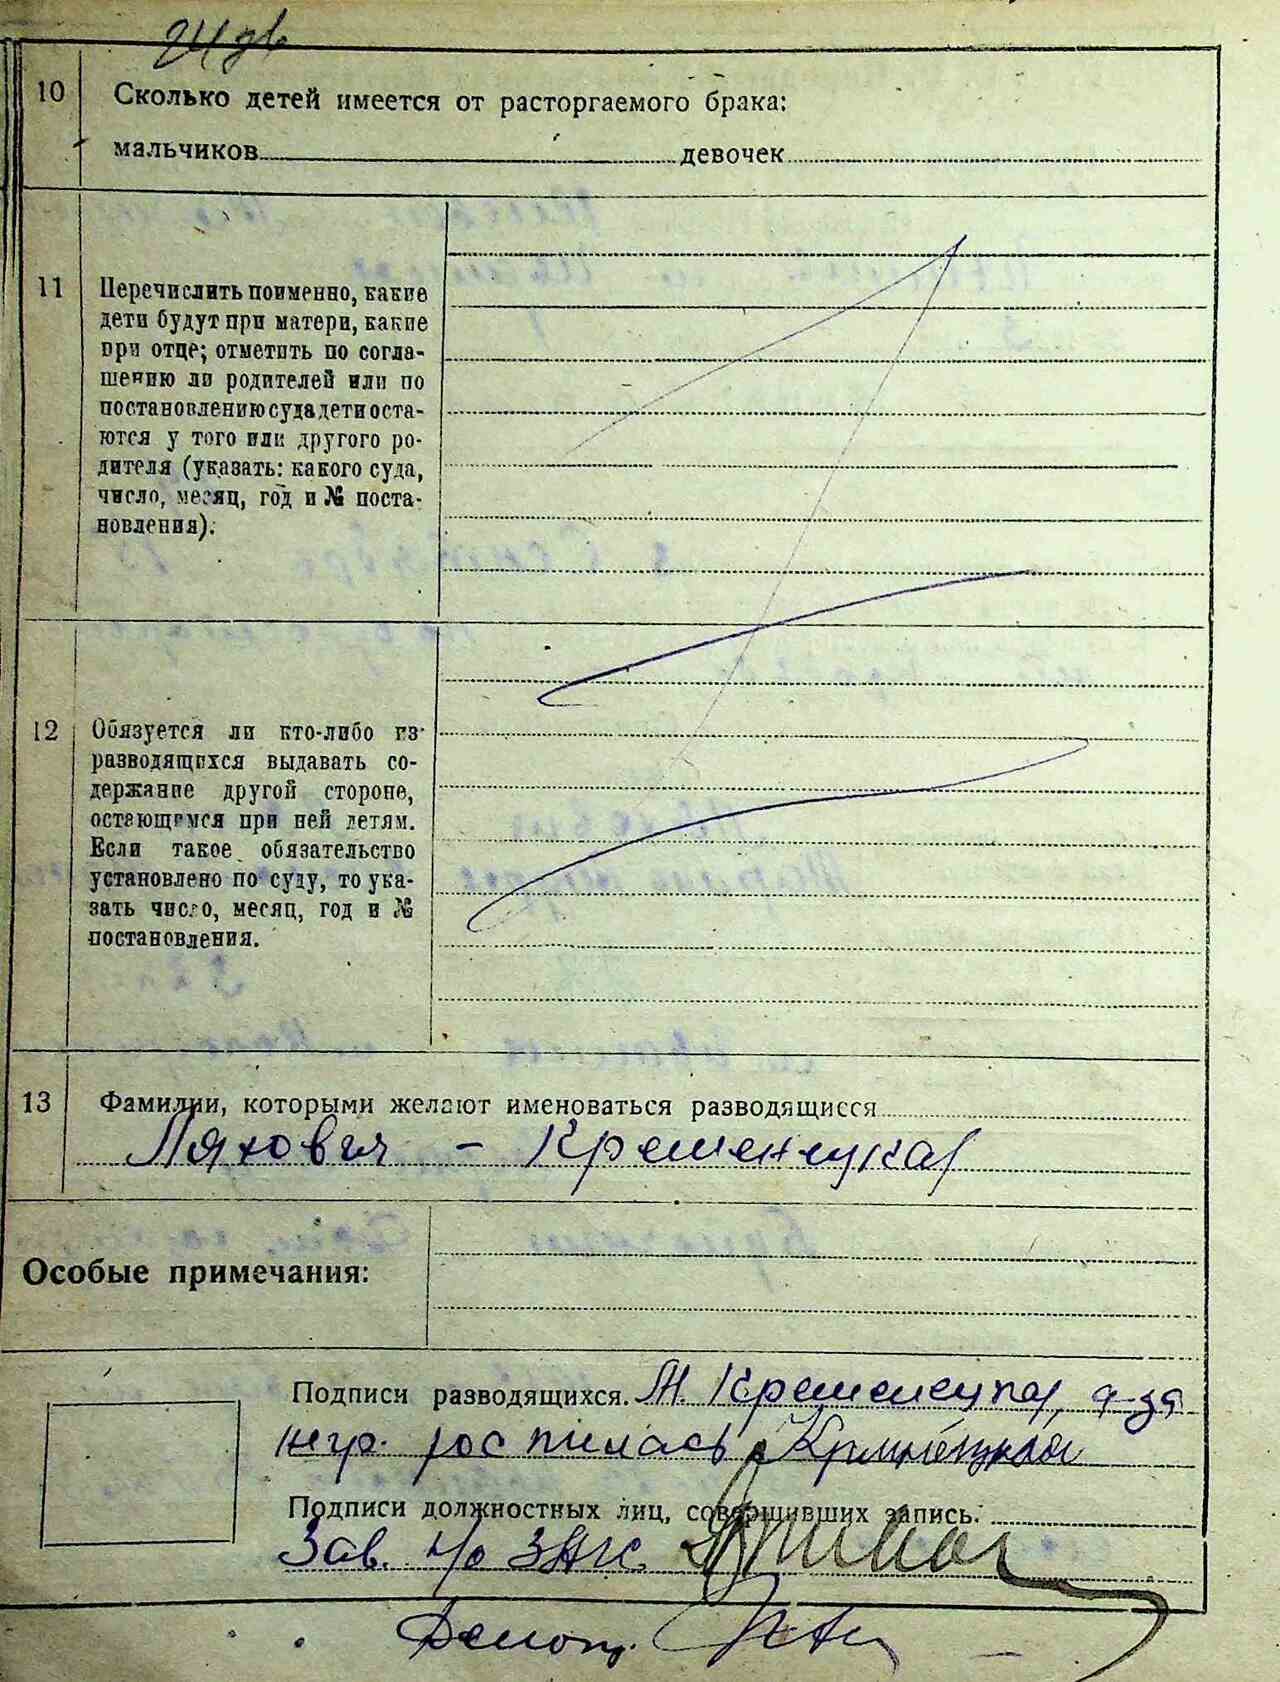 10 Сколько детей имеется от расторгаемого брака:
мальчиков девочек
11 Перечислить поименно, какие
дети будут при матери, какие
при отце; отметить по согла-
шению ли родителей или по
постановлению суда дети оста-
ются у того или другого ро-
дителя (указать: какого суда,
число, месяц, год и № поста-
новления).
12 Обязуется ли кто-либо из
разводящихся выдавать со-
держание другой стороне,
остающимся при ней детям.
Если такое обязательство
установлено по суду, то ука-
зать число, месяц, год и №
постановления.
13 Фамилии, которыми желают именоваться разводящиеся
Ляховия - Кременецкая
Особые примечания:
Подписи разводящихся. М. Кременецкая, а за
негр. росписалась Кременецкая
Подписи должностных лиц, совершивших запись.
Зав. ЗАГС.